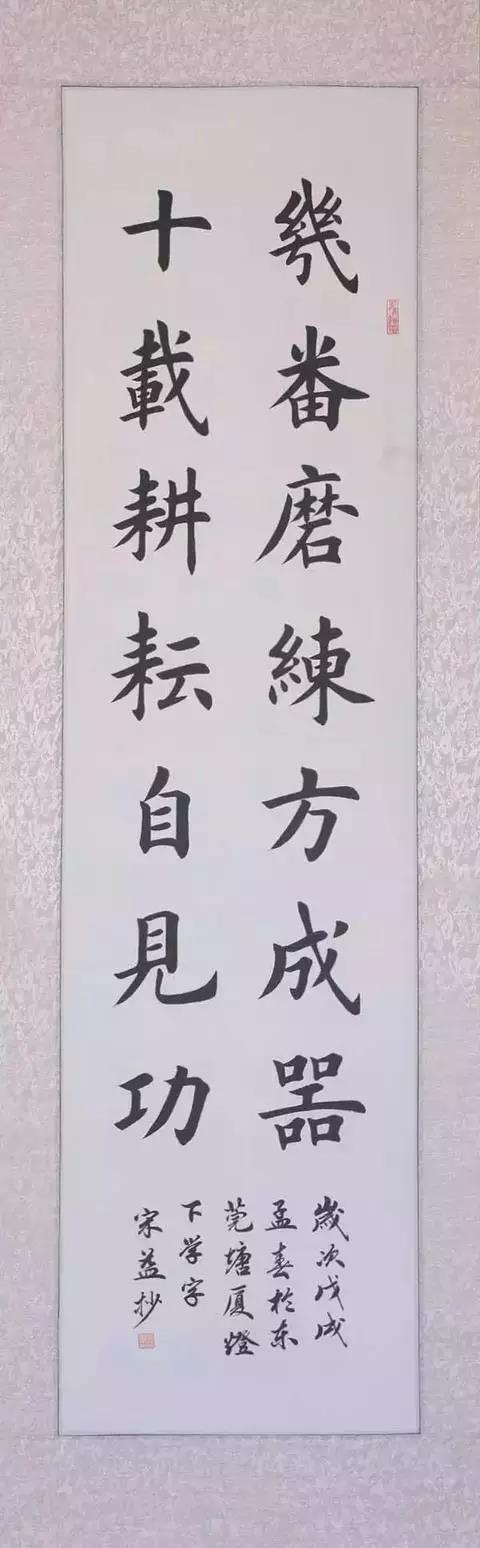 幾番磨練方成器
十載耕耘自見功
歲次戊戌
孟春於东
莞塘厦燈
下学字
宋益抄